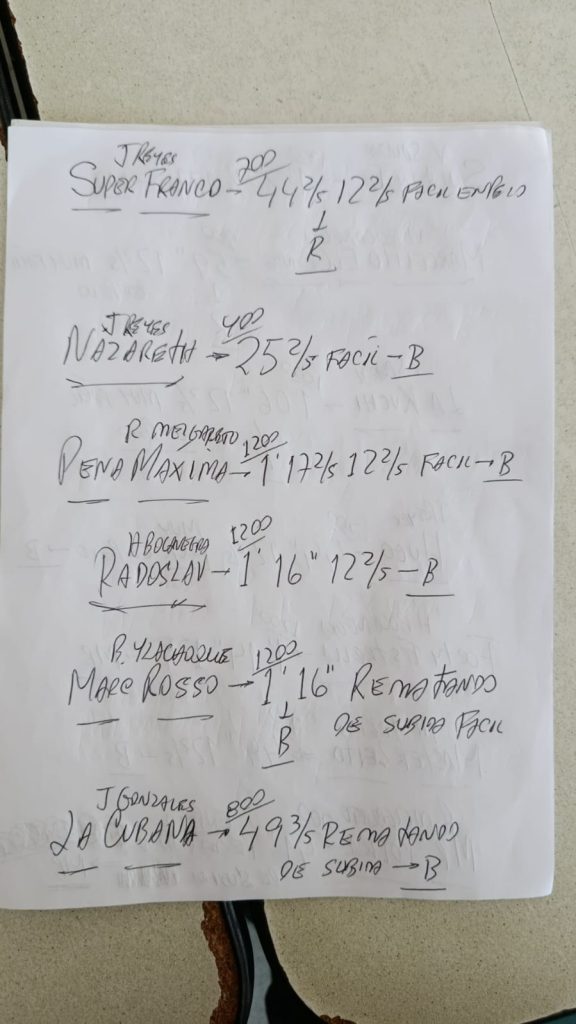 J REYES 700
SUPER FRANCO → 44 2/5 12 2/5 FACIL EN PELO
↓
R
J REYES 400
NAZARETH → 25 2/5 FACIL → B
R MELGAREJO 1200
PENA MAXIMA → 1' 17 2/5 12 2/5 FACIL → B
A BOCANEGRA 1200
RADOSLAV → 1' 16" 12 2/5 → B
B. YLACHOQUE 1200
MARC ROSSO → 1' 16" REMATANDO
↓ DE SUBIDA FACIL
B
J GONZALES 800
LA CUBANA → 49 3/5 REMATANDO
DE SUBIDA → B